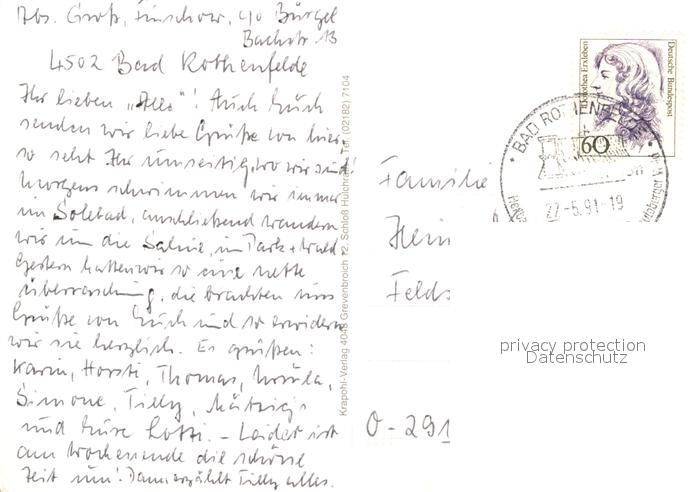 Abs. Groß, Finschow, c/o Bürgel
Bachstr 13
4502 Bad Rothenfelde
Ihr lieben „Alle"! Auch Euch
senden wir liebe Grüße von hier
so seht Ihr umseitig, wo wir sind!
Morgens schwimmen wir immer
im Solebad, anschließend wandern
wir um die Saline, im Park + Wald
Gestern hatten wir so eine nette
Überraschung, die brachten uns
Grüße von Euch und so erwidern
wir sie herzlich. Es grüßen:
Karin, Horsti, Thomas, Ursula,
Simone, Tilly,
und Eure Lotti. – Leider ist
am Wochenende die schöne
Zeit um! Dann erzählt Tilly alles.
Krapohl-Verlag 4048 Grevenbroich 12, Schloß Hülchrath, Tel. (02182) 7104
Dorothea Erxleben
Deutsche Bundespost
60
BAD ROTHENFELDE
27.-5.91-19
Familie
Hein
Felds
O-291
privacy protection
Datenschutz